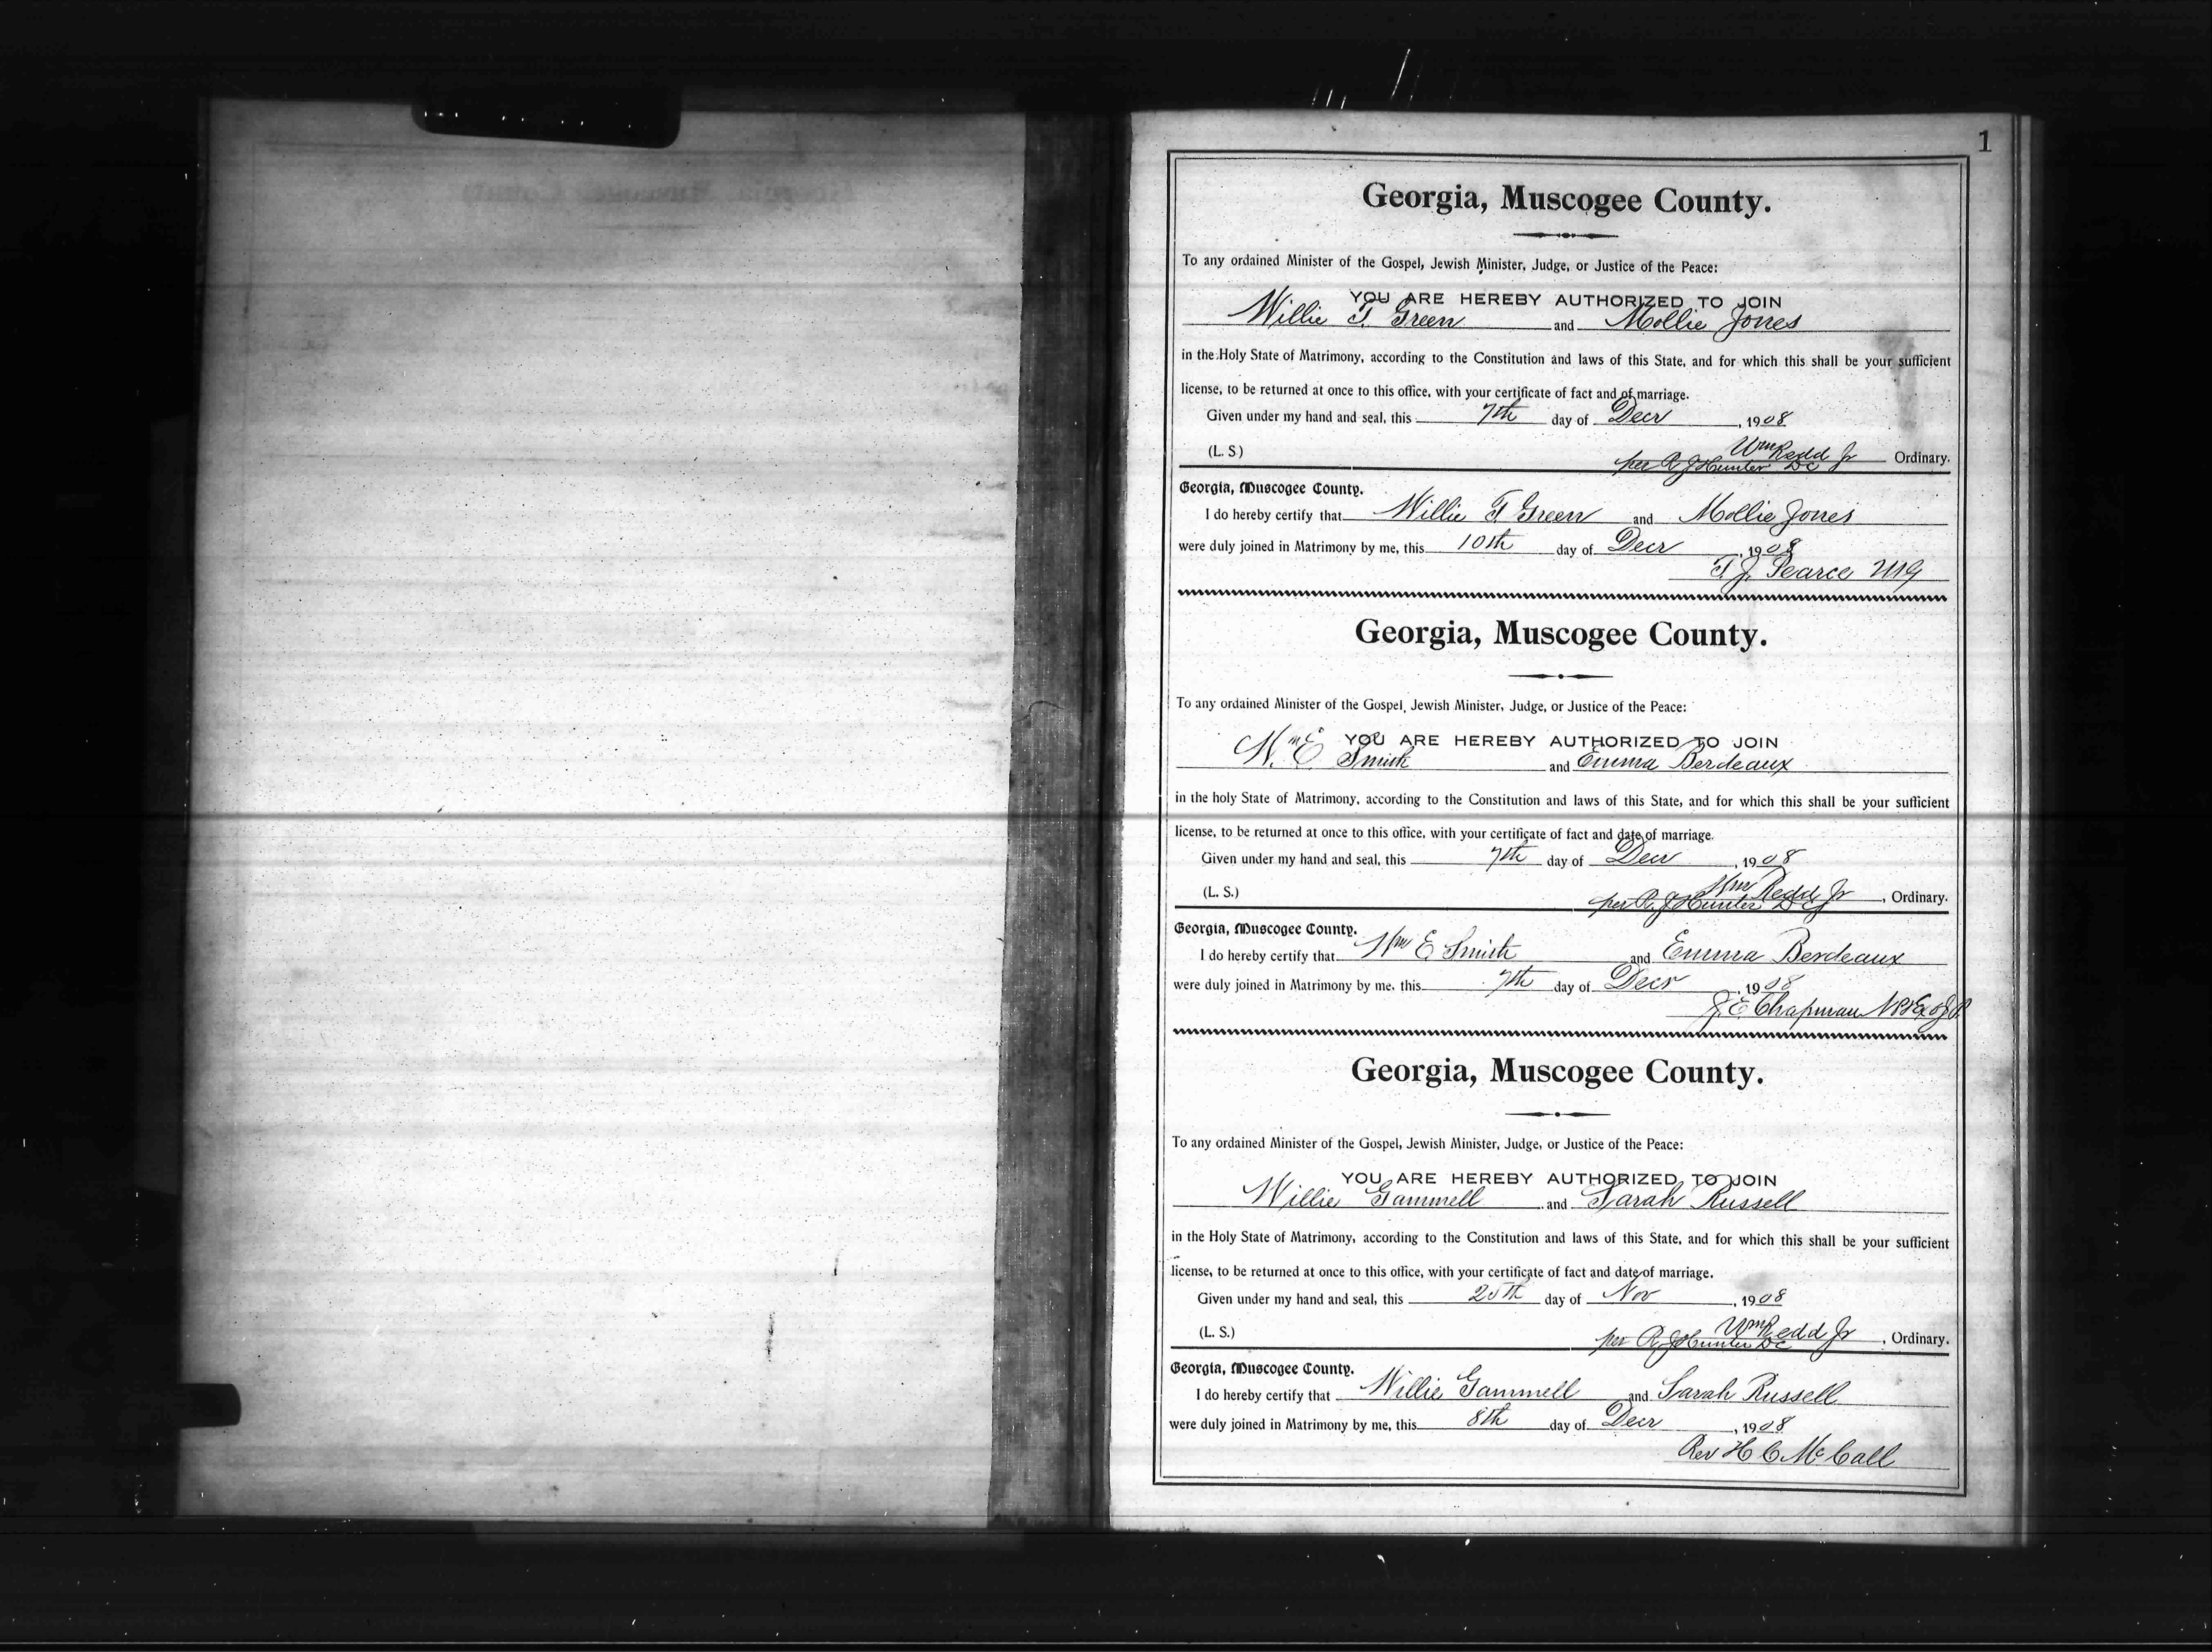 1
Georgia, Muscogee County.
To any ordained Minister of the Gospel, Jewish Minister, Judge, or Justice of the Peace:
YOU ARE HEREBY AUTHORIZED TO JOIN
Willie T. Green and Mollie Jones
in the Holy State of Matrimony, according to the Constitution and laws of this State, and for which this shall be your sufficient
license, to be returned at once to this office, with your certificate of fact and of marriage.
Given under my hand and seal, this 7th day of Decr, 1908
Wm Redd Jr
(L. S) per R J Hunter DC Ordinary.
Georgia, Muscogee County.
I do hereby certify that Willie T. Green and Mollie Jones
were duly joined in Matrimony by me, this 10th day of Decr, 1908
T. J. Pearce MG
Georgia, Muscogee County.
To any ordained Minister of the Gospel, Jewish Minister, Judge, or Justice of the Peace:
YOU ARE HEREBY AUTHORIZED TO JOIN
Wm E. Smith and Emma Berdeaux
in the holy State of Matrimony, according to the Constitution and laws of this State, and for which this shall be your sufficient
license, to be returned at once to this office, with your certificate of fact and date of marriage.
Given under my hand and seal, this 7th day of Decr, 1908
Wm Redd Jr
(L. S.) per R. J Hunter DC, Ordinary.
Georgia, Muscogee County.
I do hereby certify that Wm E Smith and Emma Berdeaux
were duly joined in Matrimony by me, this 7th day of Decr, 1908
J. E. Chapman NP & Ex of J.P.
Georgia, Muscogee County.
To any ordained Minister of the Gospel, Jewish Minister, Judge, or Justice of the Peace:
YOU ARE HEREBY AUTHORIZED TO JOIN
Willie Gammell and Sarah Russell
in the Holy State of Matrimony, according to the Constitution and laws of this State, and for which this shall be your sufficient
license, to be returned at once to this office, with your certificate of fact and date of marriage.
Given under my hand and seal, this 25th day of Nov, 1908
Wm Redd Jr
(L. S.) per R J Hunter DC, Ordinary.
Georgia, Muscogee County.
I do hereby certify that Willie Gammell and Sarah Russell
were duly joined in Matrimony by me, this 8th day of Decr, 1908
Rev H C McCall